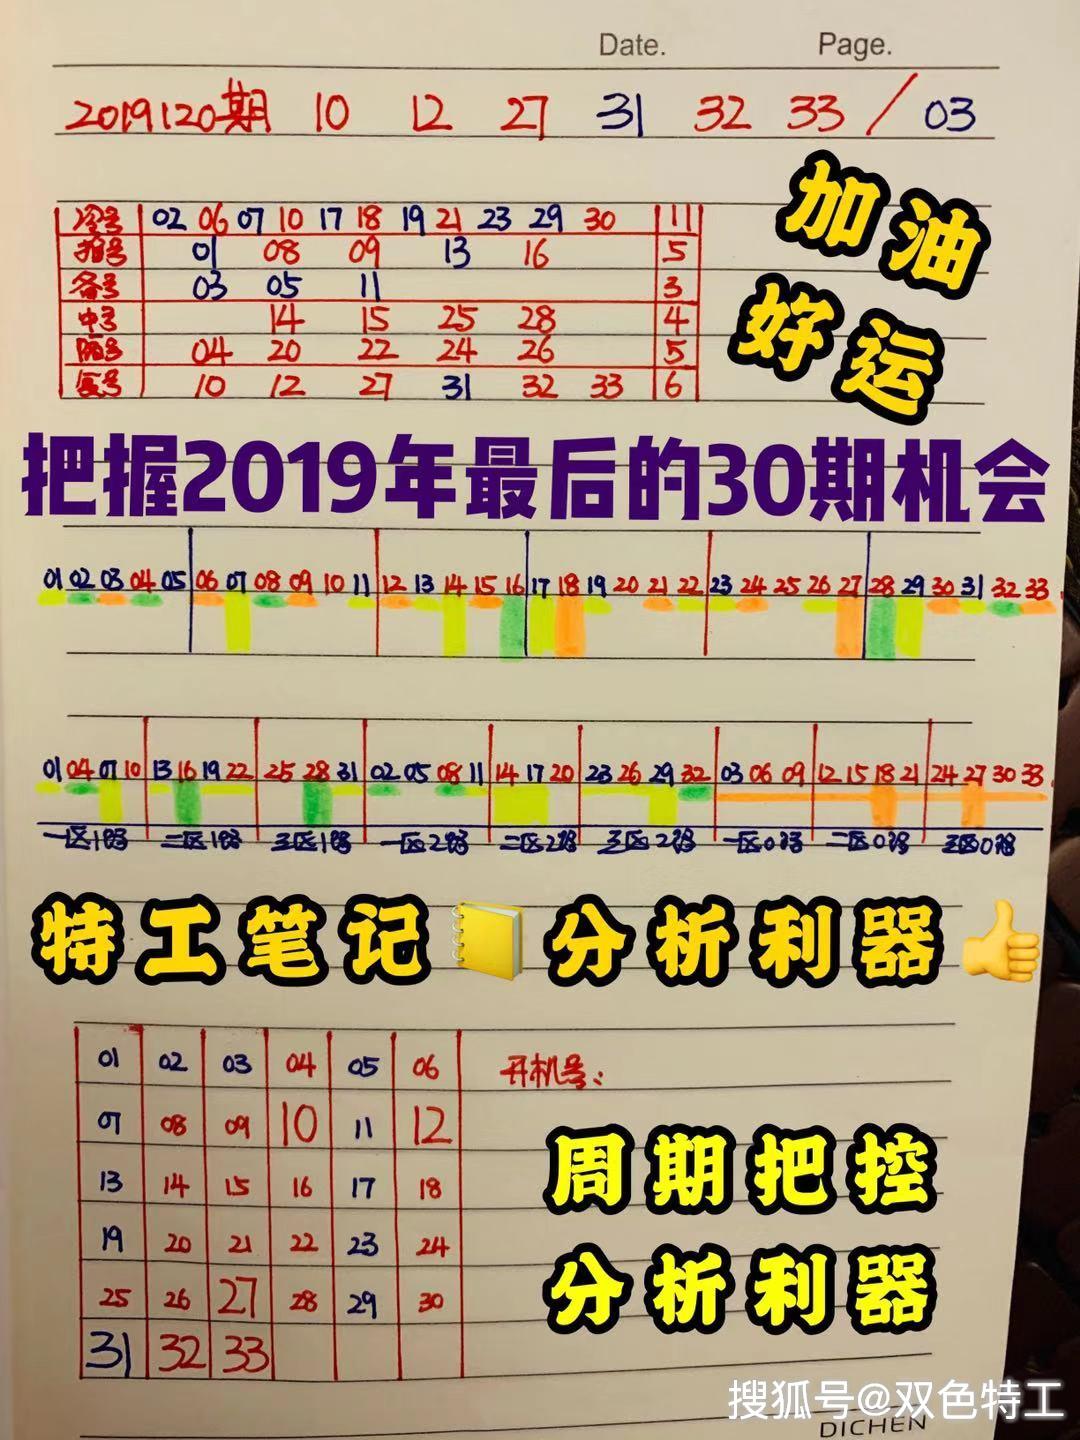 Date. Page.
2019120期 10 12 27 31 32 33 / 03
加油
好运
冷号 02 06 07 10 17 18 19 21 23 29 30 11
01 08 09 13 16 5
备号 03 05 11 3
中号 14 15 25 28 4
04 20 22 24 26 5
复号 10 12 27 31 32 33 6
把握2019年最后的30期机会
01 02 03 04 05 06 07 08 09 10 11 12 13 14 15 16 17 18 19 20 21 22 23 24 25 26 27 28 29 30 31 32 33
01 04 07 10 13 16 19 22 25 28 31 02 05 08 11 14 17 20 23 26 29 32 03 06 09 12 15 18 21 24 27 30 33
一区1路 二区1路 三区1路 一区2路 二区2路 三区2路 一区0路 二区0路 三区0路
特工笔记📒分析利器👍
01 02 03 04 05 06
开机号:
07 08 09 10 11 12
13 14 15 16 17 18
19 20 21 22 23 24
25 26 27 28 29 30
31 32 33
周期把控
分析利器
搜狐号@双色特工
DICHEN